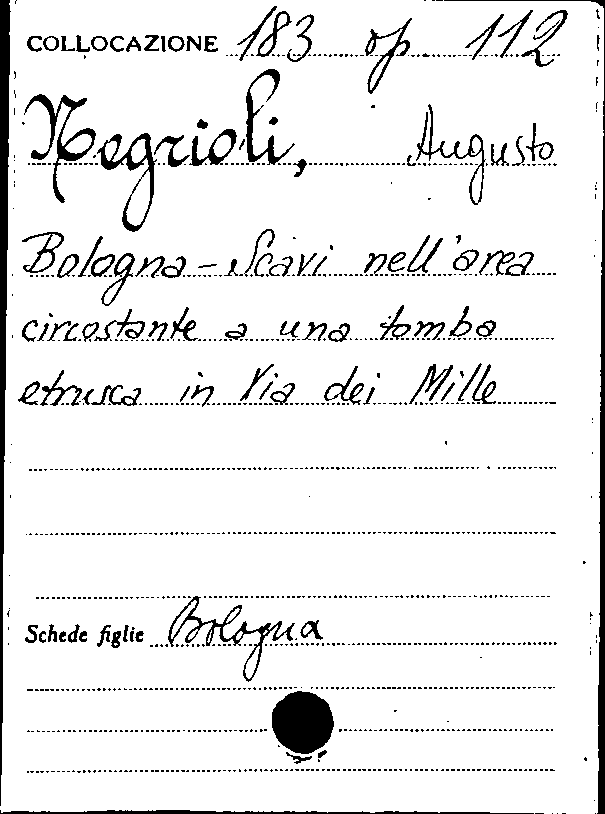 COLLOCAZIONE 183 op. 112
Negrioli, Augusto
Bologna - Scavi nell'area
circostante a una tomba
etrusca in Via dei Mille
Schede figlie Bologna